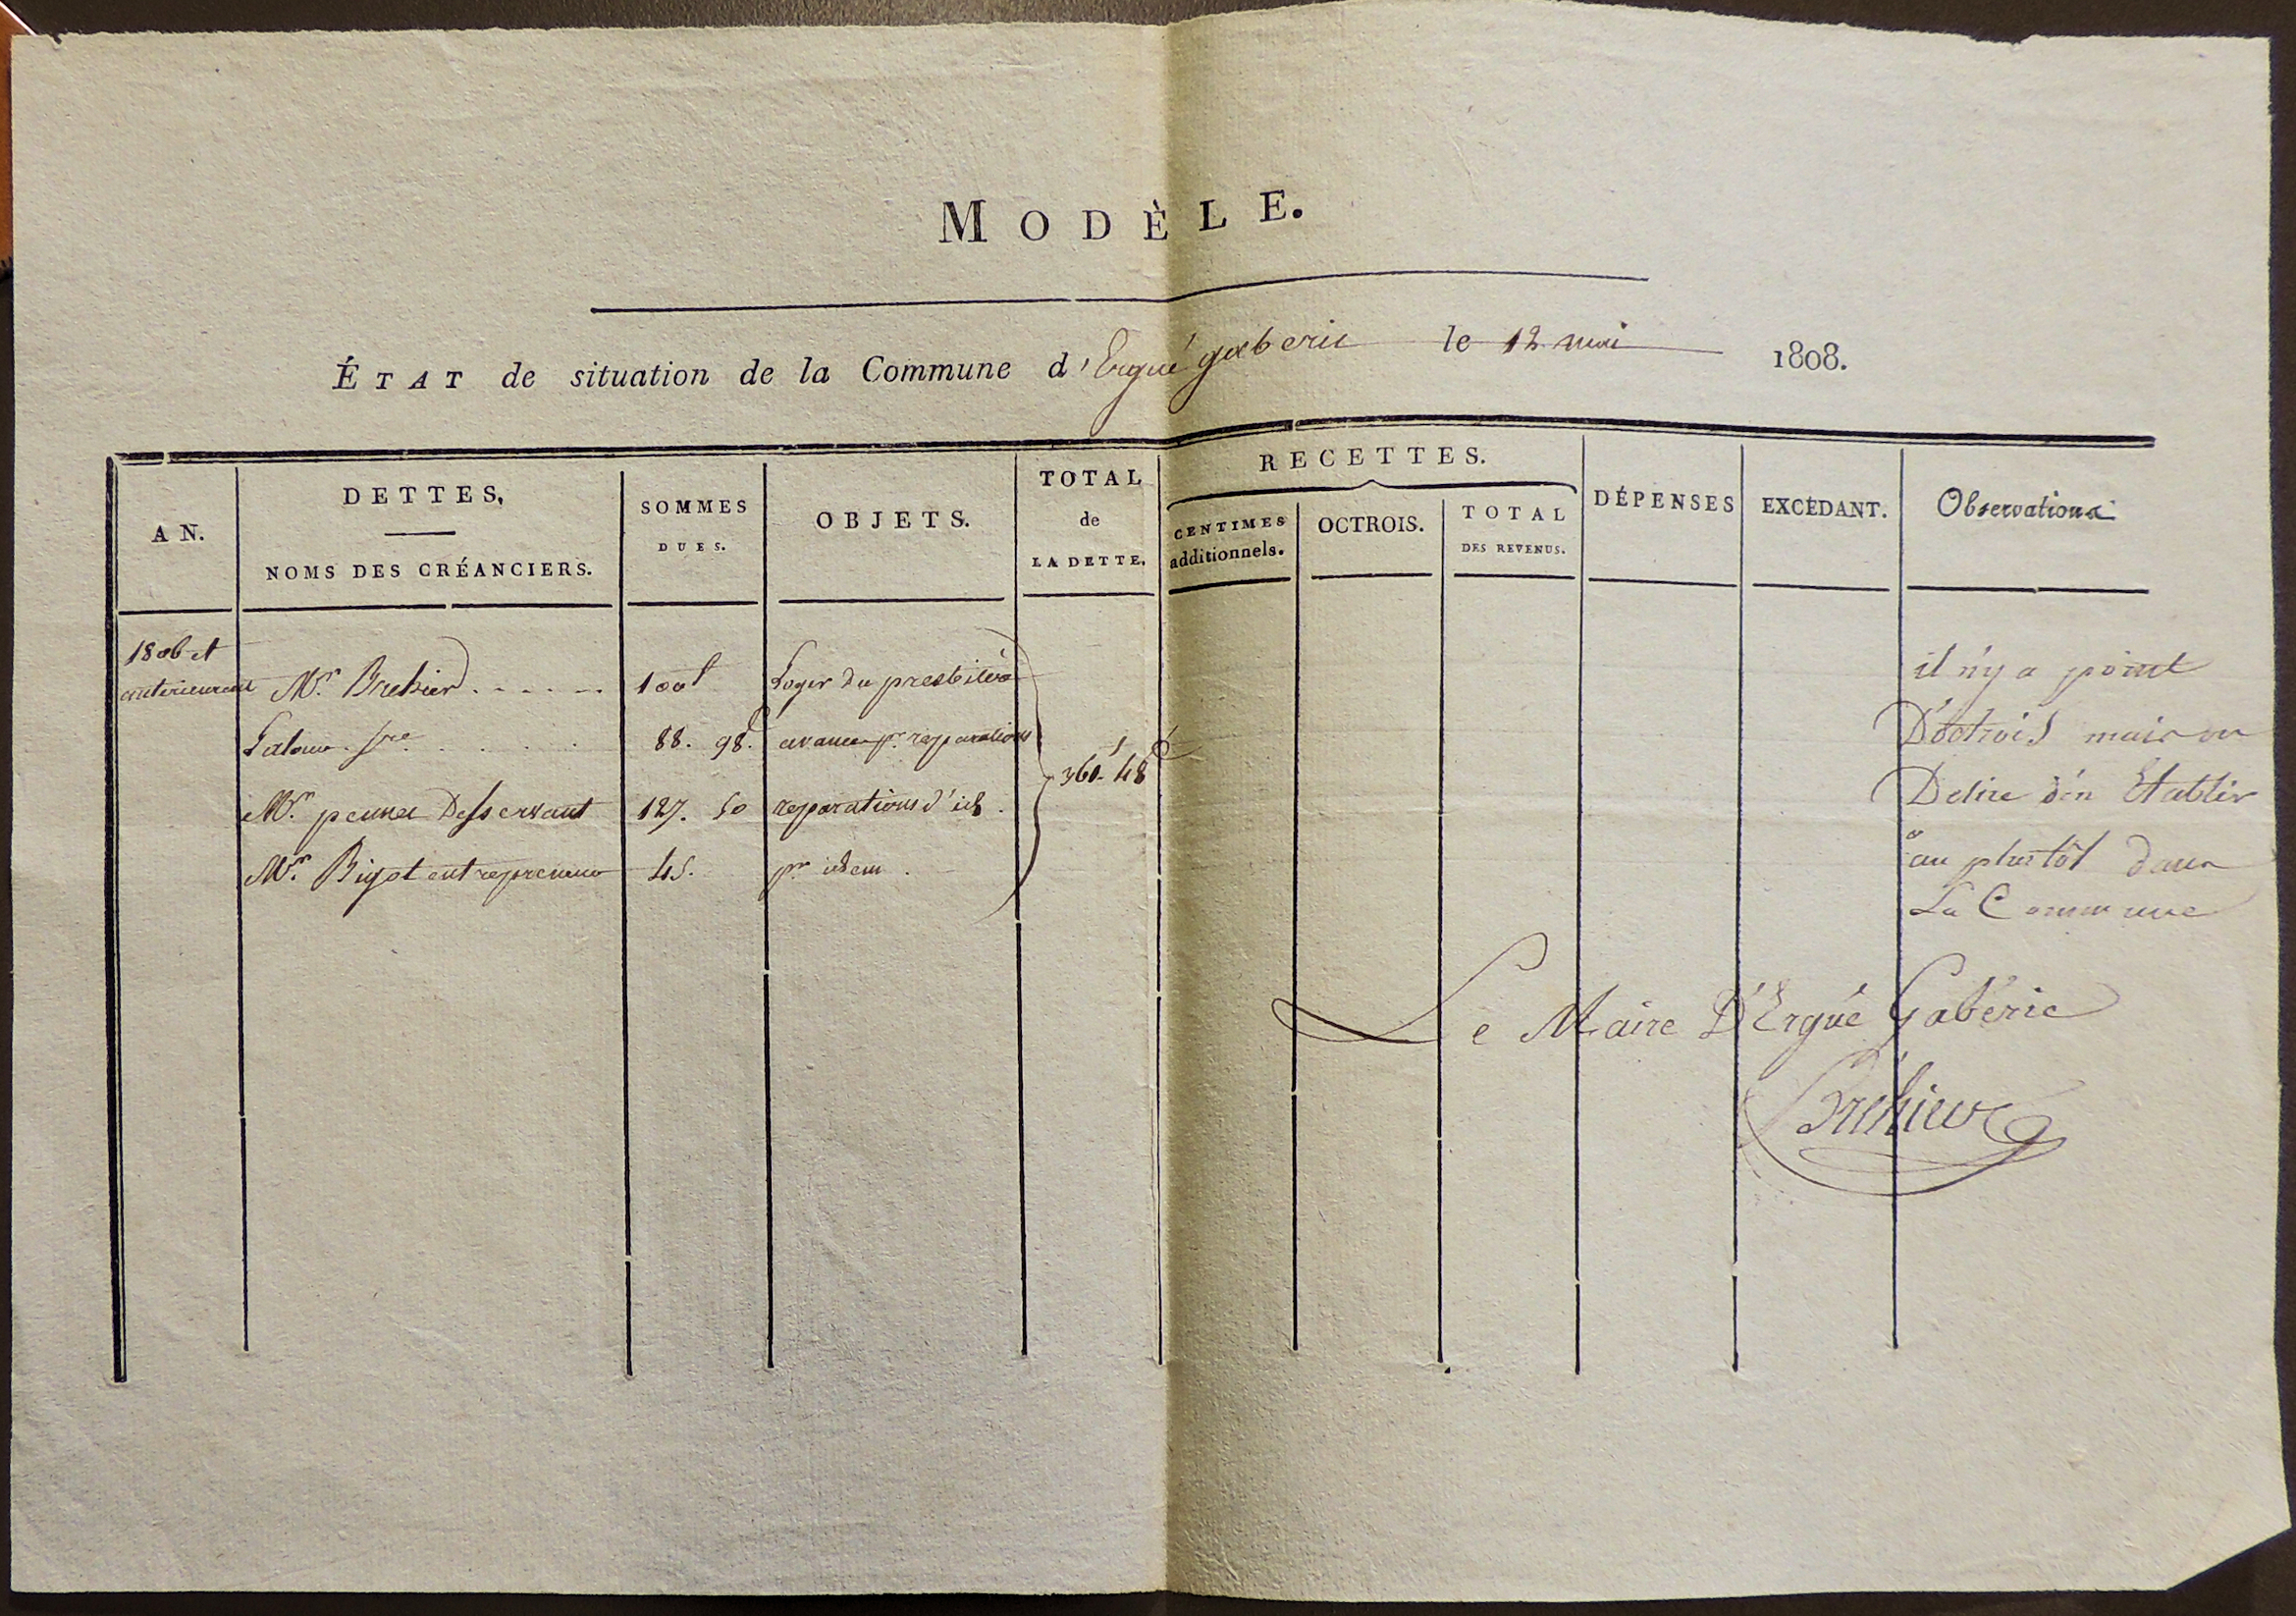 MODÈLE.
ÉTAT de situation de la Commune d'Ergué gaberic le 12 mai 1808.
AN.
DETTES,
NOMS DES CRÉANCIERS.
SOMMES
DUES.
OBJETS.
TOTAL
de
LA DETTE.
RECETTES.
CENTIMES
additionnels.
OCTROIS.
TOTAL
DES REVENUS.
DÉPENSES
EXCÉDANT.
Observations
1806 et
anterieurement Mr. Brehier 100f Loyer du presbitère
88. 98c. avances pr. reparations
Mr. Desservant 127. 50 reparations d'id.
Mr. Bigot entrepreneur 45. pr. idem.
360f 48c
il n'y a point
D'octrois mais on
Desire d'en Etablir
au plustôt dans
La Commune
Le Maire D'Ergué Gabéric
Brehier